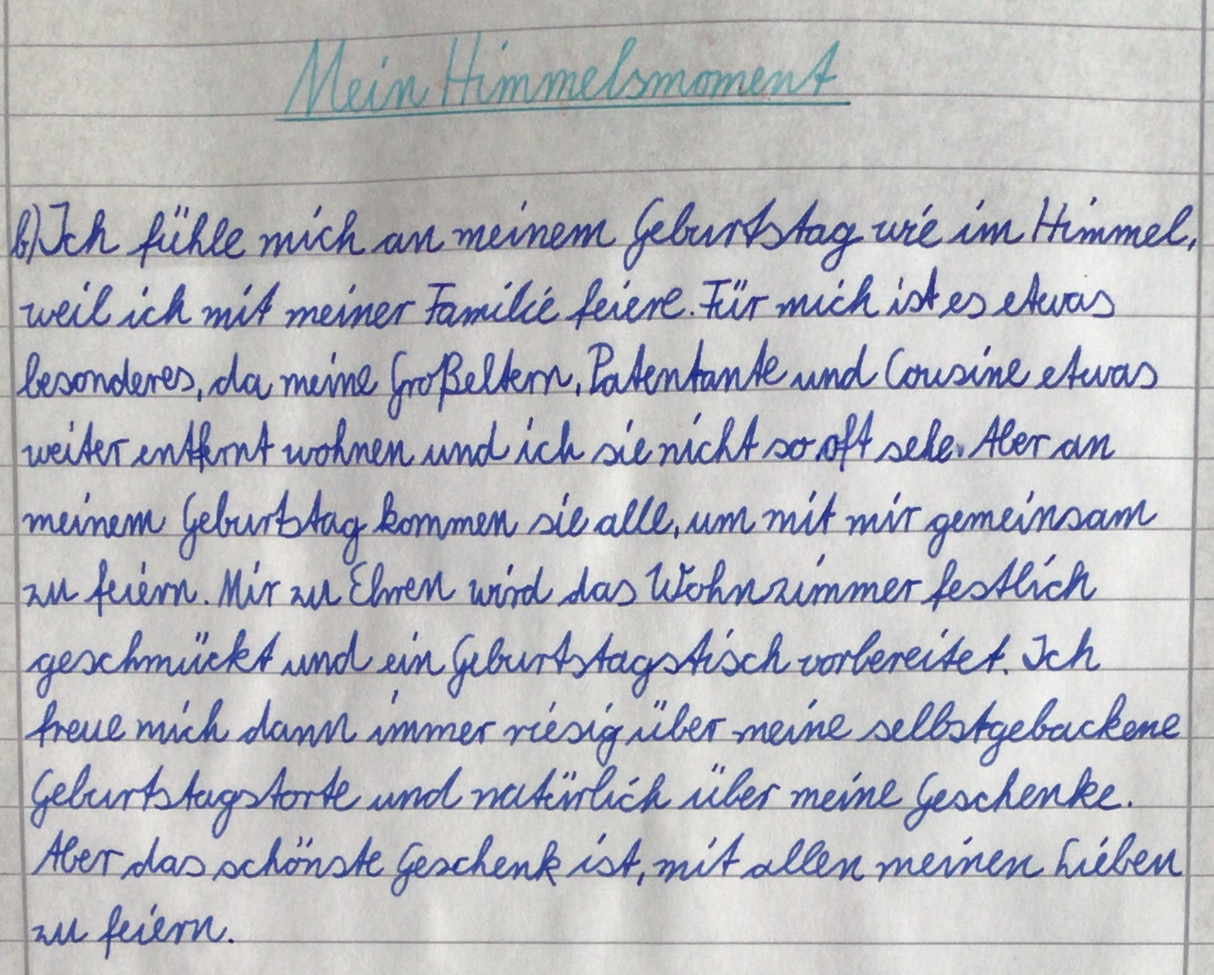 Mein Himmelsmoment
b) Ich fühle mich an meinem Geburtstag wie im Himmel,
weil ich mit meiner Familie feiere. Für mich ist es etwas
besonderes, da meine Großeltern, Patentante und Cousine etwas
weiter entfernt wohnen und ich sie nicht so oft sehe. Aber an
meinem Geburtstag kommen sie alle, um mit mir gemeinsam
zu feiern. Mir zu Ehren wird das Wohnzimmer festlich
geschmückt und ein Geburtstagstisch vorbereitet. Ich
freue mich dann immer riesig über meine selbstgebackene
Geburtstagstorte und natürlich über meine Geschenke.
Aber das schönste Geschenk ist, mit allen meinen Lieben
zu feiern.